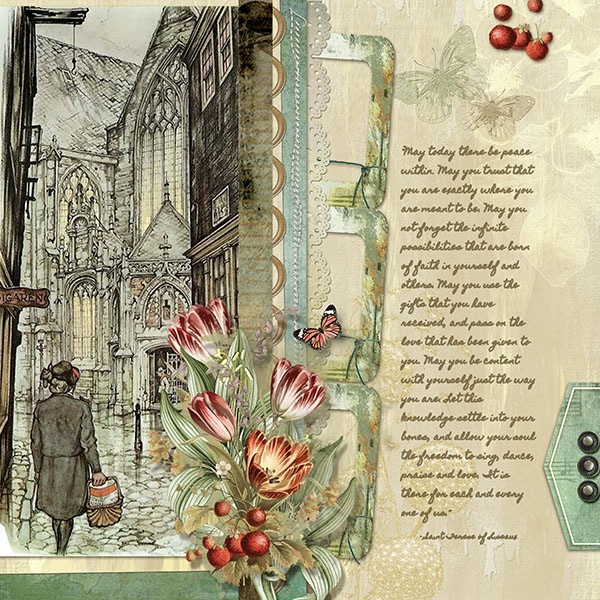 IGAREN
May today there be peace
within. May you trust that
you are exactly where you
are meant to be. May you
not forget the infinite
possibilities that are born
of faith in yourself and
others. May you use the
gifts that you have
received, and pass on the
love that has been given to
you. May you be content
with yourself just the way
you are. Let this
knowledge settle into your
bones, and allow your soul
the freedom to sing, dance,
praise and love. It is
there for each and every
one of us."
-Saint Terese of Liseaus